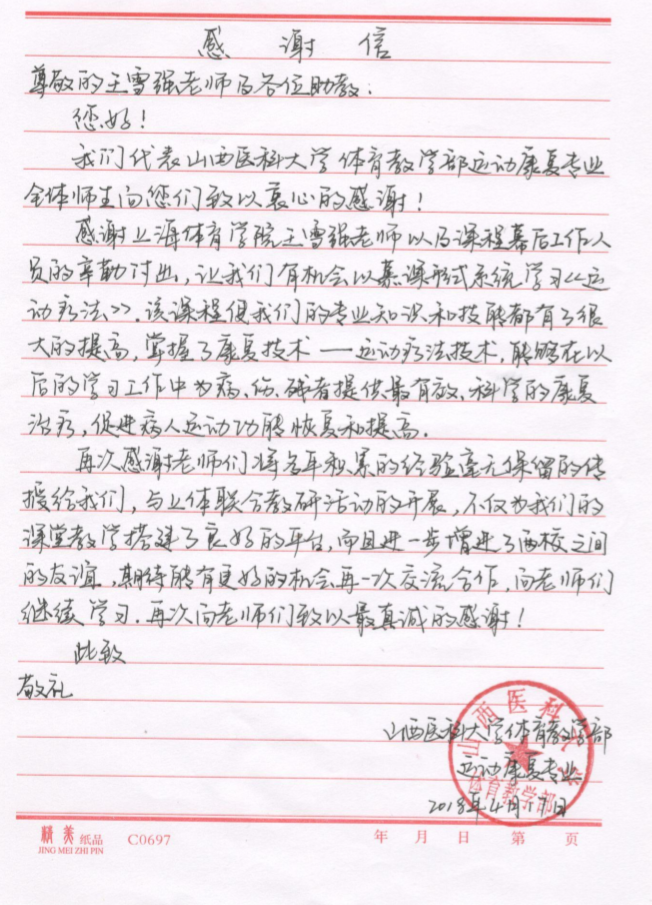 感 谢 信
尊敬的王雪强老师及各位助教:
您好!
我们代表山西医科大学体育教学部运动康复专业
全体师生向您们致以衷心的感谢!
感谢上海体育学院王雪强老师以及课程幕后工作人
员的辛勤付出,让我们有机会以慕课形式系统学习《运
动疗法》.该课程使我们的专业知识和技能都有了很
大的提高,掌握了康复技术——运动疗法技术,能够在以
后的学习工作中为病、伤、残者提供最有效、科学的康复
治疗,促进病人运动功能恢复和提高.
再次感谢老师们将多年积累的经验毫无保留的传
授给我们,与上体联合教研活动的开展,不仅为我们的
课堂教学搭建了良好的平台,而且进一步增进了两校之间
的友谊,期待能有更好的机会再一次交流合作,向老师们
继续学习.再次向老师们致以最真诚的感谢!
此致
敬礼
山西医科大学体育教学部
运动康复专业
2018年4月17日
山西医科大学
体育教学部
精美纸品 C0697 年 月 日 第 页
JING MEI ZHI PIN